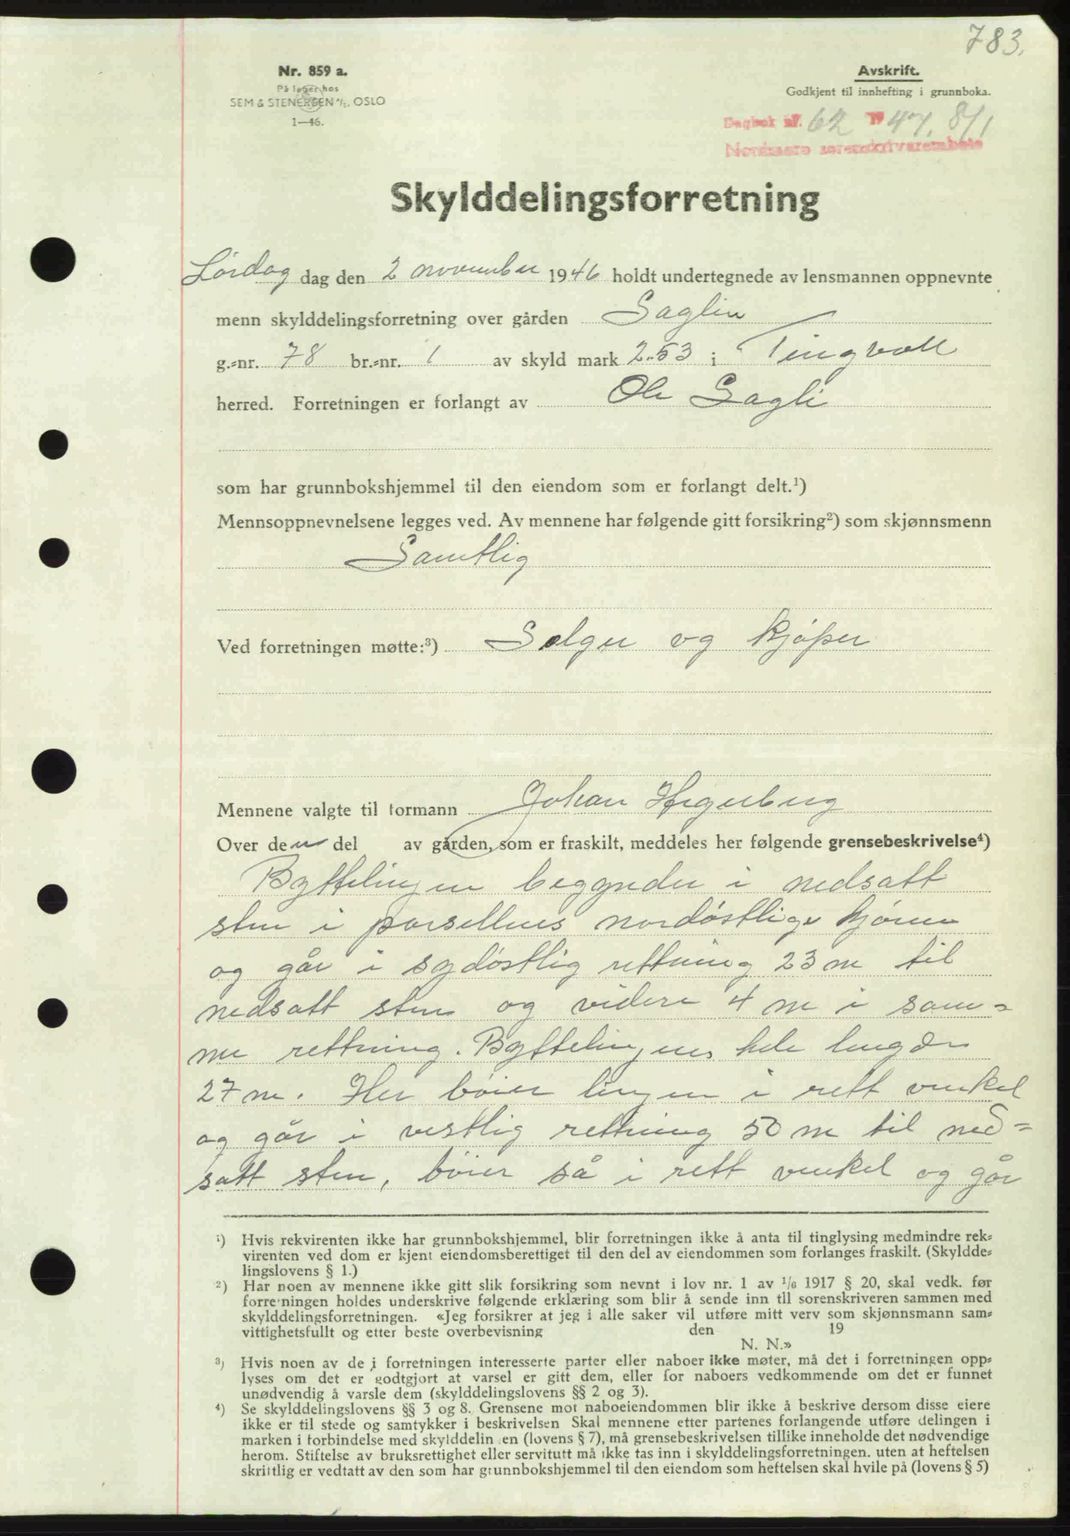 783.
Nr. 859 a.
På lager hos
SEM & STENERSEN A/S, OSLO
1—46.
Avskrift.
Godkjent til innhefting i grunnboka.
Dagbok nr. 62 1947, 8/1
Nordmøre sorenskriverembete
Skylddelingsforretning
Lørdag dag den 2 november 1946 holdt undertegnede av lensmannen oppnevnte
menn skylddelingsforretning over gården Saglien
g.-nr. 78 br.-nr. 1 av skyld mark 2.53 i Tingvoll
herred. Forretningen er forlangt av Ole Sagli
som har grunnbokshjemmel til den eiendom som er forlangt delt.¹)
Mennsoppnevnelsene legges ved. Av mennene har følgende gitt forsikring²) som skjønnsmenn
Samtlig
Ved forretningen møtte:³) Selger og kjøper
Mennene valgte til formann Johan Hegerberg
Over den del av gården, som er fraskilt, meddeles her følgende grensebeskrivelse⁴)
Byttelinjen begynder i nedsatt
sten i parsellens nordøstlige hjørne
og går i sydøstlig rettning 23 m til
nedsatt sten og videre 4 m i sam-
me rettning. Byttelinjens hele lengde
27 m. Her bøier linjen i rett vinkel
og går i vestlig rettning 50 m til ned-
satt sten, bøier så i rett vinkel og går
¹) Hvis rekvirenten ikke har grunnbokshjemmel, blir forretningen ikke å anta til tinglysing medmindre rek-
virenten ved dom er kjent eiendomsberettiget til den del av eiendommen som forlanges fraskilt. (Skyldde-
lingslovens § 1.)
²) Har noen av mennene ikke gitt slik forsikring som nevnt i lov nr. 1 av 1/6 1917 § 20, skal vedk. før
forretningen holdes underskrive følgende erklæring som blir å sende inn til sorenskriveren sammen med
skylddelingsforretningen. «Jeg forsikrer at jeg i alle saker vil utføre mitt verv som skjønnsmann sam-
vittighetsfullt og etter beste overbevisning den 19
N. N.»
³) Hvis noen av de i forretningen interesserte parter eller naboer ikke møter, må det i forretningen opp-
lyses om det er godtgjort at varsel er gitt dem, eller for naboers vedkommende om det er funnet
unødvendig å varsle dem (skylddelingslovens §§ 2 og 3).
⁴) Se skylddelingslovens §§ 3 og 8. Grensene mot naboeiendommen blir ikke å beskrive dersom disse eiere
ikke er til stede og samtykker i beskrivelsen Skal mennene etter partenes forlangende utføre delingen i
marken i forbindelse med skylddelingen (lovens § 7), må grensebeskrivelsen tillike inneholde det nødvendige
herom. Stiftelse av bruksrettighet eller servitutt må ikke tas inn i skylddelingsforretningen, uten at heftelsen
skriftlig er vedtatt av den som har grunnbokshjemmel til den eiendom som heftelsen skal hvile på (lovens § 5)